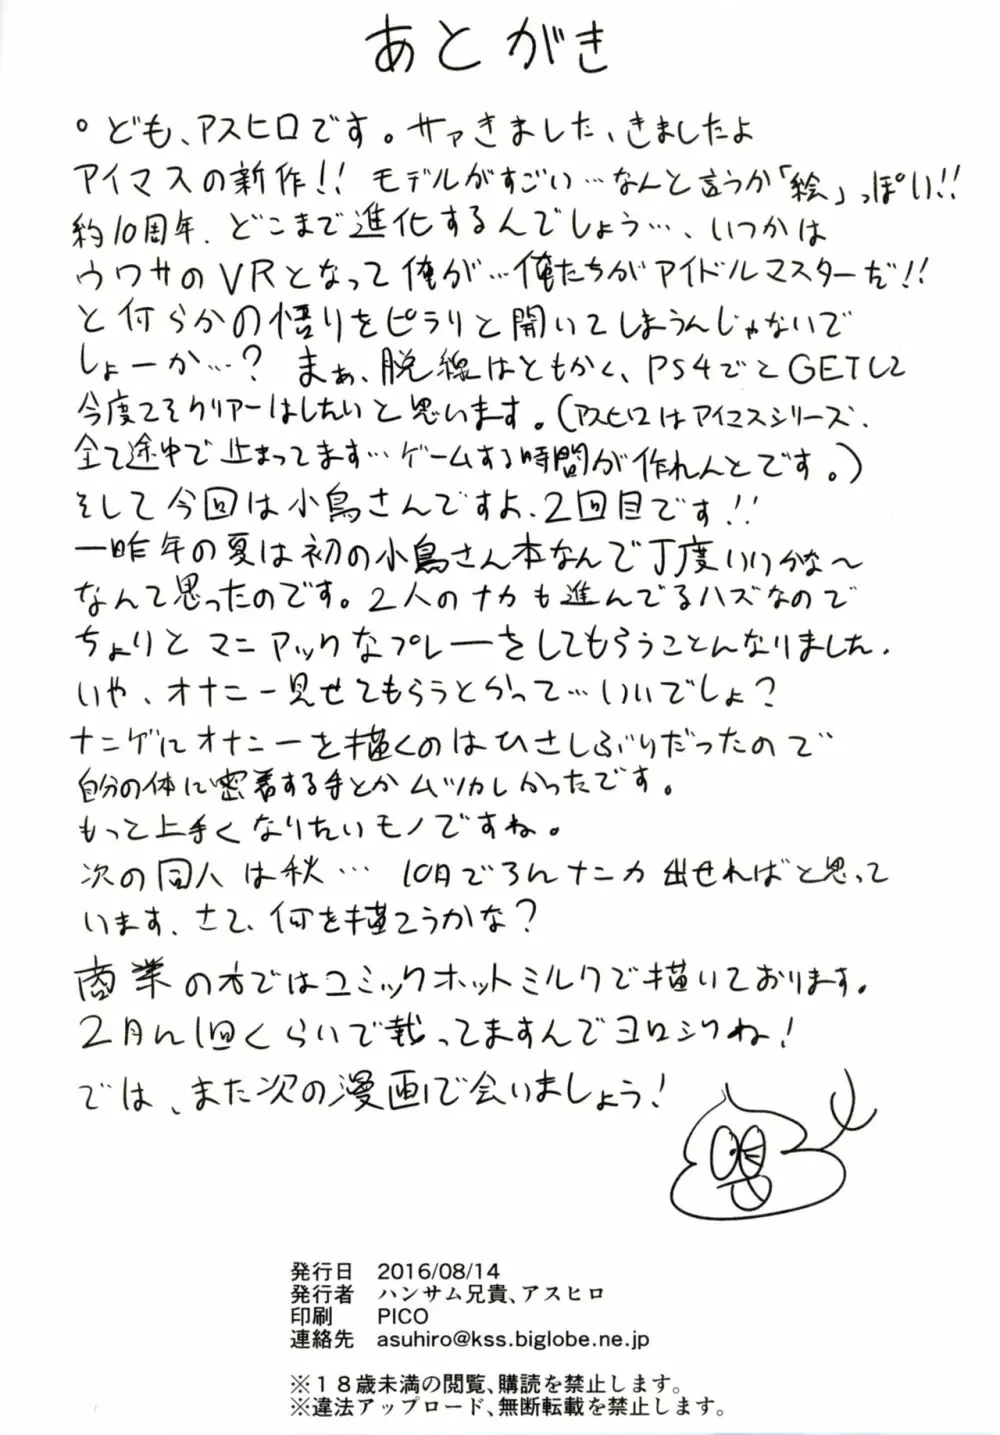 あとがき
。ども、アスヒロです。サァきました、きましたよ
アイマスの新作!! モデルがすごい…なんと言うか「絵」っぽい!!
約10周年、どこまで進化するんでしょう…、いつかは
ウワサのVRとなって俺が…俺たちがアイドルマスターだ!!
と何らかの悟りをピラリと開いてしまうんじゃないで
しょーか…? まぁ、脱線はともかく、PS4でとGETして
今度こそクリアーはしたいと思います。(アスヒロはアイマスシリーズ、
全て途中で止まってます…ゲームする時間が作れんとです。)
そして今回は小鳥さんですよ、2回目です!!
一昨年の夏は初の小鳥さん本なんで丁度いいかな〜
なんて思ったのです。2人のナカも進んでるハズなので
ちょりとマニアックなプレーをしてもらうことんなりました、
いや、オナニー見せてもらうとかって…いいでしょ?
ナニゲにオナニーを描くのはひさしぶりだったので
自分の体に密着する手とかムツカしかったです。
もっと上手くなりたいモノですね。
次の同人は秋… 10月でろんナニカ出せればと思って
います、さて、何を描こうかな?
商業の方ではコミックホットミルクで描いております。
2月に1回くらいで載ってますんでヨロシクね!
では、また次の漫画で会いましょう!
発行日 2016/08/14
発行者 ハンサム兄貴、アスヒロ
印刷 PICO
連絡先 asuhiro@kss.biglobe.ne.jp
※18歳未満の閲覧、購読を禁止します。
※違法アップロード、無断転載を禁止します。